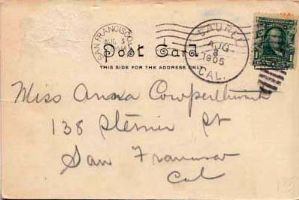 SAN FRANCISCO
AUG
Post Card
THIS SIDE FOR THE ADDRESS ONLY
LAUREL
AUG
8
1905
CAL.
Miss Anna Cowperthwait
138 Steiner St
San Francisco
Cal